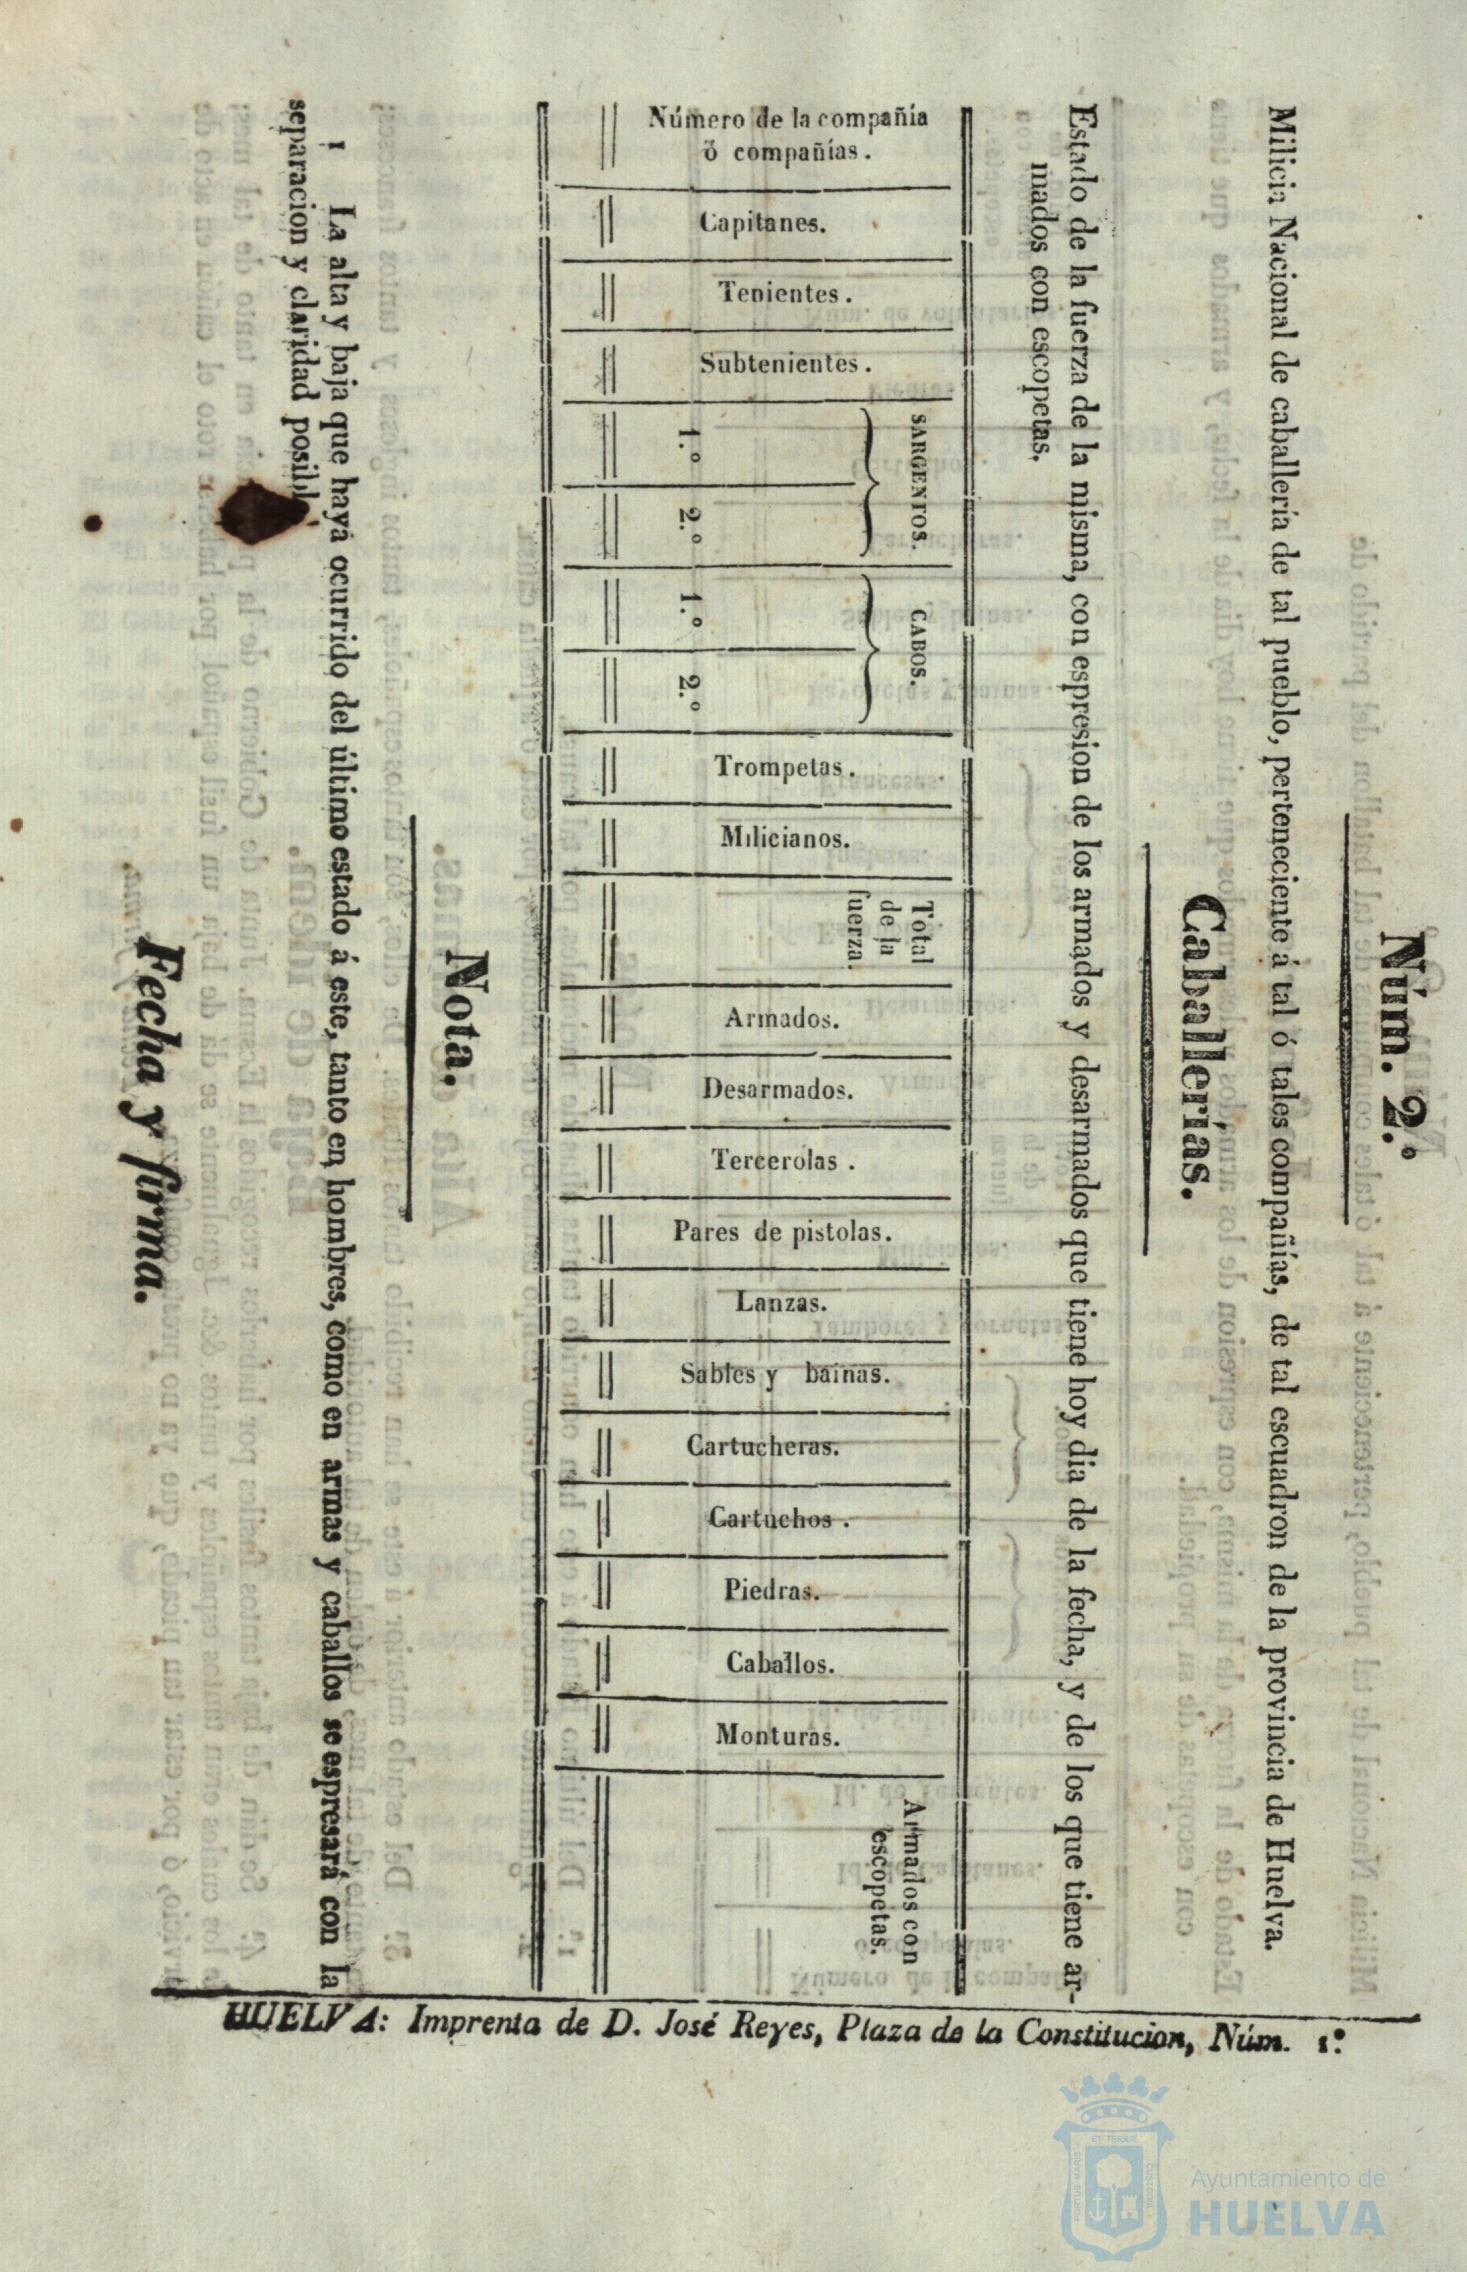 Núm. 2.º
Milicia Nacional de caballería de tal pueblo, perteneciente á tal ó tales compañías, de tal escuadron de la provincia de Huelva.
Caballerías.
Estado de la fuerza de la misma, con espresion de los armados y desarmados que tiene hoy dia de la fecha, y de los que tiene ar-
mados con escopetas.
Número de la compañía
ó compañías.
Capitanes.
Tenientes.
Subtenientes.
SARGENTOS.
1.º
2.º
CABOS.
1.º
2.º
Trompetas.
Milicianos.
Total
de la
fuerza.
Armados.
Desarmados.
Tercerolas.
Pares de pistolas.
Lanzas.
Sables y bainas.
Cartucheras.
Cartuchos.
Piedras.
Caballos.
Monturas.
Armados con
escopetas.
Nota.
1 La alta y baja que haya ocurrido del último estado á este, tanto en hombres, como en armas y caballos se espresará con la
separacion y claridad posibl
Fecha y firma.
HUELVA: Imprenta de D. José Reyes, Plaza de la Constitucion, Núm. 1.º
Ayuntamiento de
HUELVA